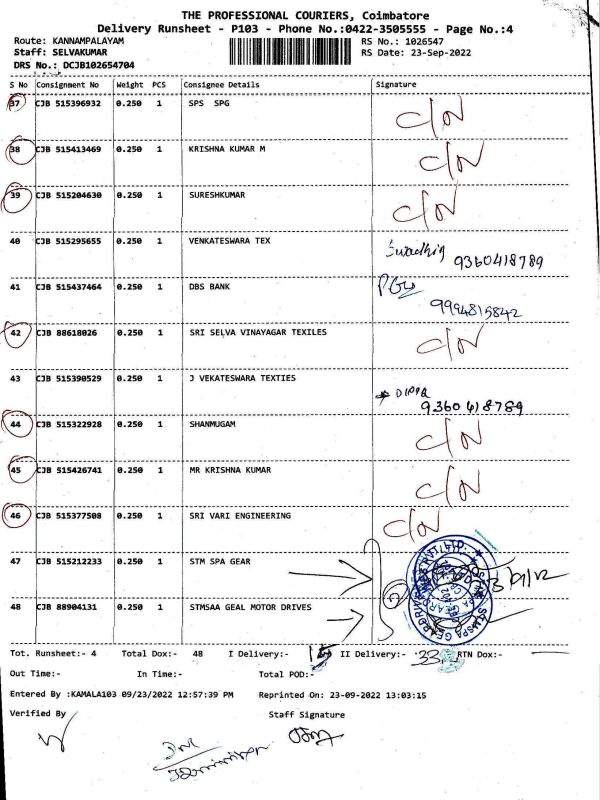 THE PROFESSIONAL COURIERS, Coimbatore
Delivery Runsheet - P103 - Phone No.:0422-3505555 - Page No.:4
Route: KANNAMPALAYAM RS No.: 1026547
Staff: SELVAKUMAR RS Date: 23-Sep-2022
DRS No.: DCJB102654704
S No Consignment No Weight PCS Consignee Details Signature
37 CJB 515396932 0.250 1 SPS SPG C/N
38 CJB 515413469 0.250 1 KRISHNA KUMAR M C/N
39 CJB 515204630 0.250 1 SURESHKUMAR C/N
40 CJB 515295655 0.250 1 VENKATESWARA TEX 9360418789
41 CJB 515437464 0.250 1 DBS BANK 9994815842
42 CJB 88618026 0.250 1 SRI SELVA VINAYAGAR TEXILES C/N
43 CJB 515390529 0.250 1 J VEKATESWARA TEXTIES 9360418789
44 CJB 515322928 0.250 1 SHANMUGAM C/N
45 CJB 515426741 0.250 1 MR KRISHNA KUMAR C/N
46 CJB 515377508 0.250 1 SRI VARI ENGINEERING C/N
47 CJB 515212233 0.250 1 STM SPA GEAR
48 CJB 88904131 0.250 1 STMSAA GEAL MOTOR DRIVES
Tot. Runsheet:- 4 Total Dox:- 48 I Delivery:- 15 II Delivery:- 33 RTN Dox:-
Out Time:- In Time:- Total POD:-
Entered By :KAMALA103 09/23/2022 12:57:39 PM Reprinted On: 23-09-2022 13:03:15
Verified By Staff Signature